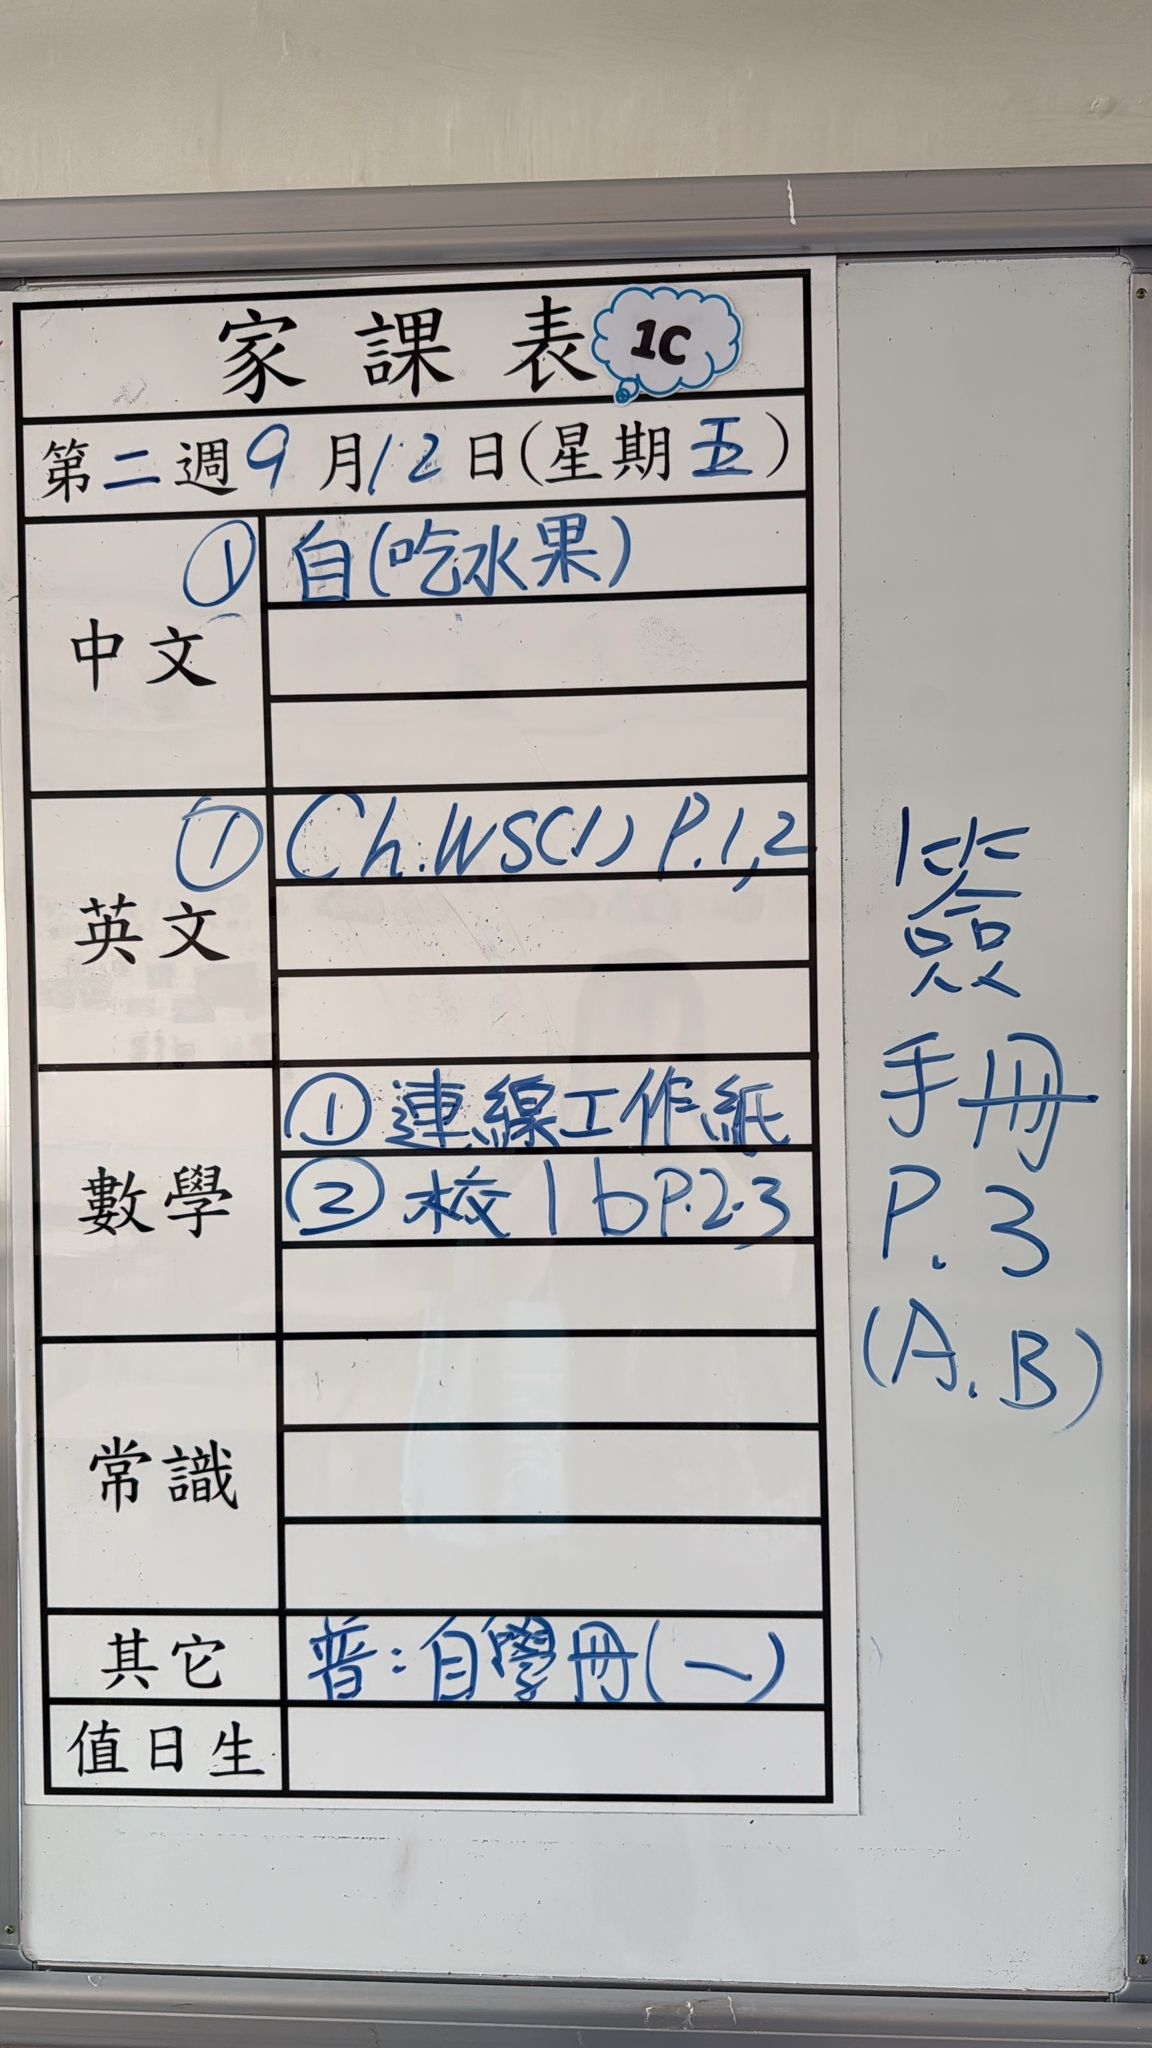 家課表 1C
第二週9月12日(星期五)
中文
① 自(吃水果)
英文
① Ch.WS(1) P.1,2
數學
① 連線工作紙
② 校1b P.2.3
常識
其它
普:自學冊(一)
值日生
簽
手冊
P.3
(A.B)